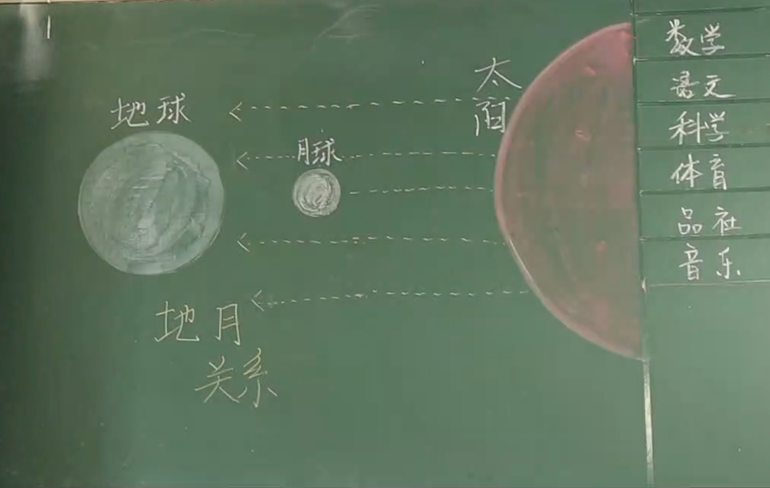 地球
月球
太
阳
地月
关系
数学
语文
科学
体育
品社
音乐